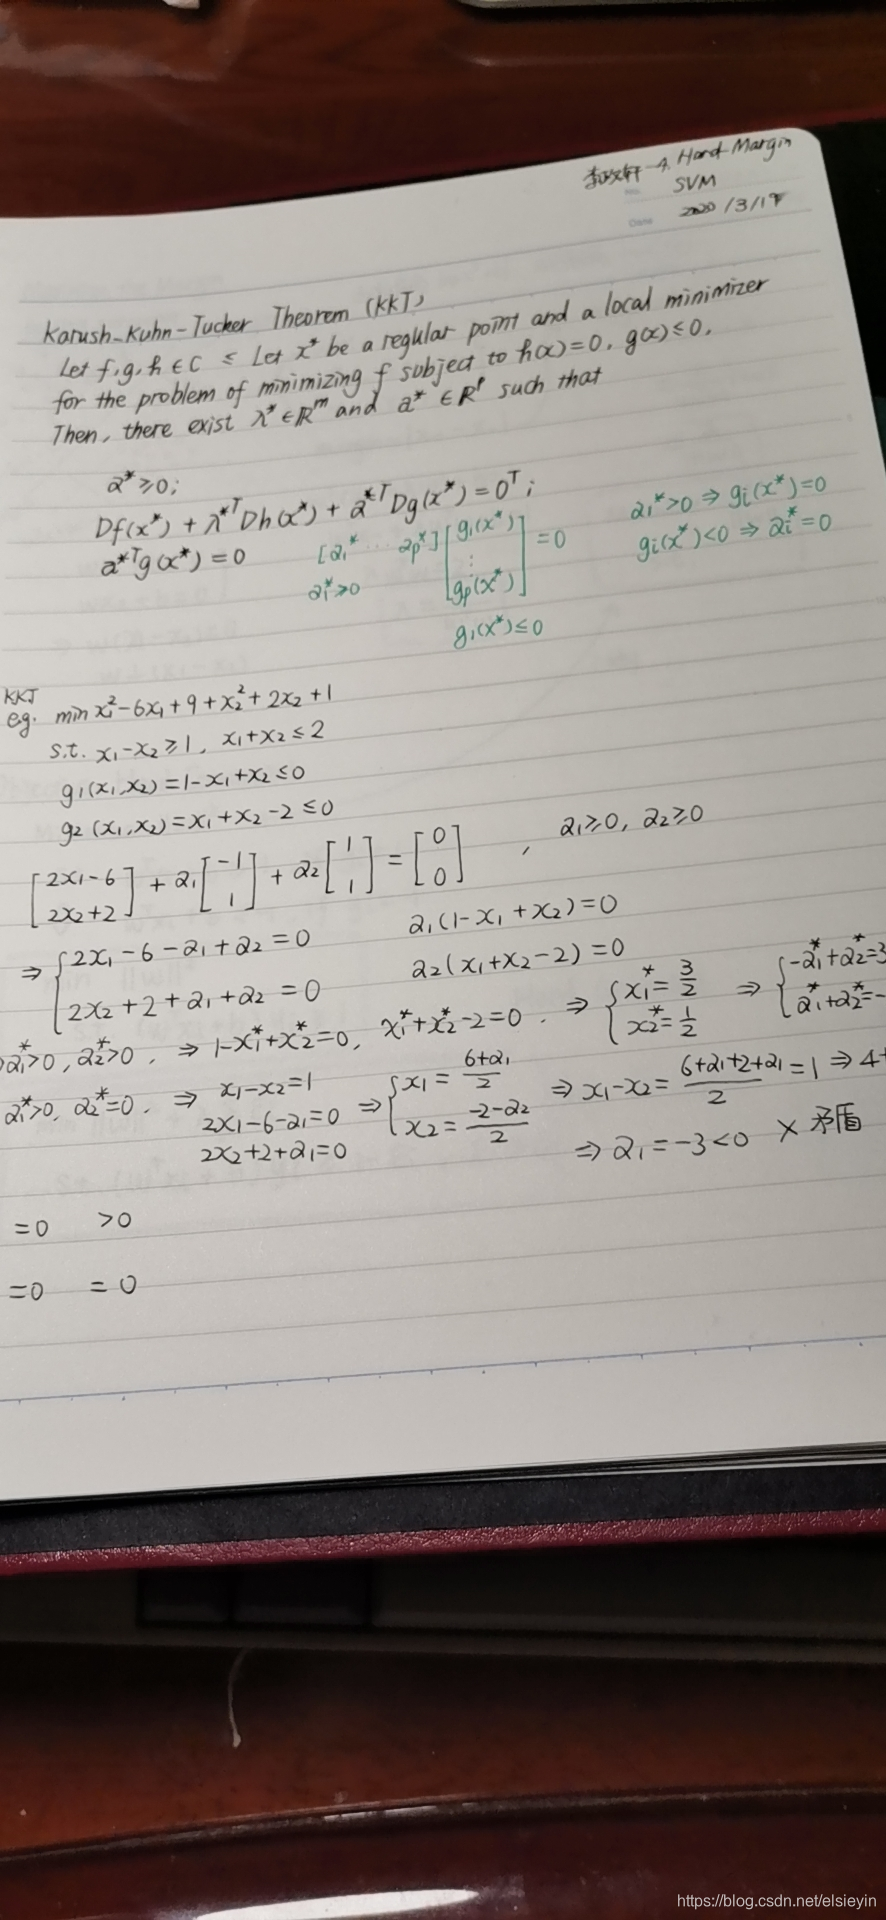 李政轩-4. Hard Margin
SVM
2020/3/19
Karush-Kuhn-Tucker Theorem (KKT)
Let f,g,h ∈ C ≤ Let x* be a regular point and a local minimizer
for the problem of minimizing f subject to h(x)=0, g(x)≤0.
Then, there exist λ*∈R^m and a* ∈R^p such that
a*≥0;
Df(x*) + λ*ᵀDh(x*) + a*ᵀDg(x*) = 0ᵀ;
a*ᵀg(x*) = 0
[a₁* ⋯ ap*] [g₁(x*) ⋮ gp(x*)] = 0
ai*≥0
g₁(x*)≤0
a₁*>0 ⇒ gi(x*)=0
gi(x*)<0 ⇒ ai*=0
KKT
eg. min x₁²-6x₁+9+x₂²+2x₂+1
s.t. x₁-x₂≥1, x₁+x₂≤2
g₁(x₁,x₂)=1-x₁+x₂≤0
g₂(x₁,x₂)=x₁+x₂-2≤0
[2x₁-6 2x₂+2] + a₁[-1 1] + a₂[1 1] = [0 0] , a₁≥0, a₂≥0
⇒ {2x₁-6-a₁+a₂=0 a₁(1-x₁+x₂)=0
2x₂+2+a₁+a₂=0 a₂(x₁+x₂-2)=0
a₁*>0, a₂*>0. ⇒ 1-x₁*+x₂*=0, x₁*+x₂*-2=0. ⇒ {x₁*=3/2 x₂*=1/2 ⇒ {-a₁*+a₂*=3 a₁*+a₂*=-
a₁*>0, a₂*=0. ⇒ x₁-x₂=1
2x₁-6-a₁=0 ⇒ {x₁=(6+a₁)/2 x₂=(-2-a₂)/2 ⇒ x₁-x₂=(6+a₁+2+a₁)/2=1 ⇒ 4+
2x₂+2+a₁=0
⇒ a₁=-3<0 × 矛盾
=0 >0
=0 =0
https://blog.csdn.net/elsieyin